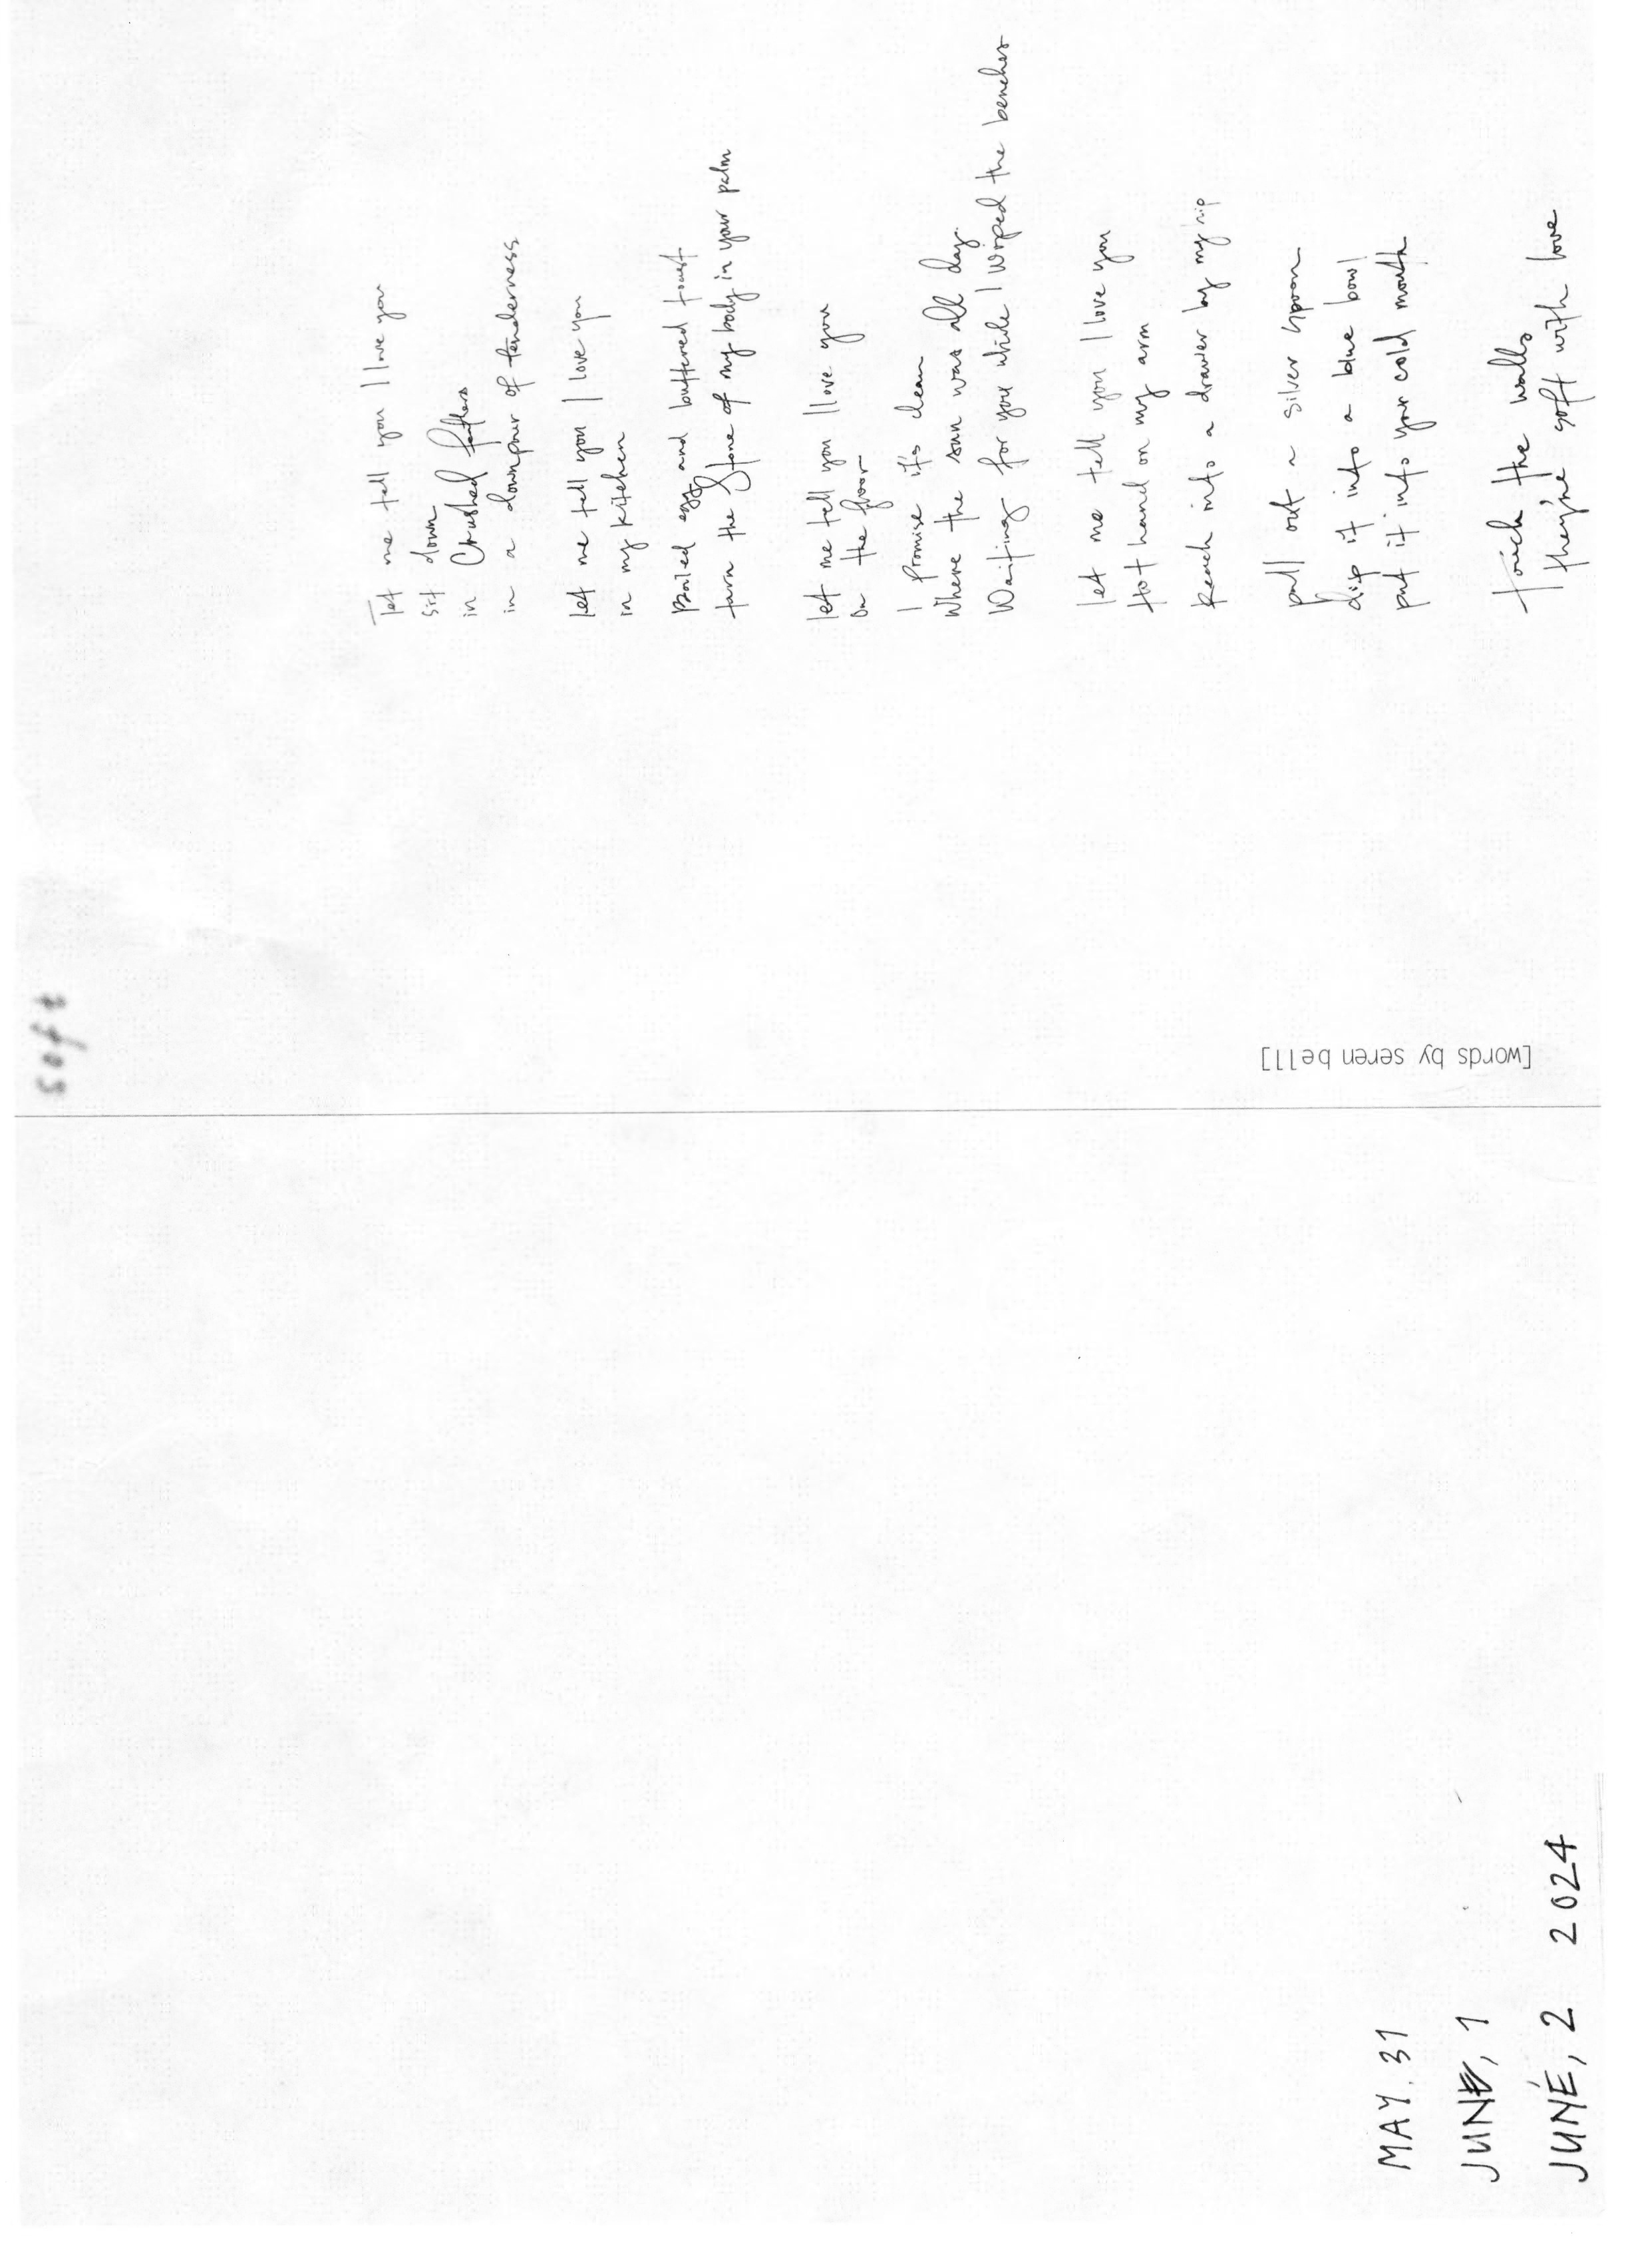 soft
let me tell you I love you
sit down
in Crushed feathers
in a downpour of tenderness
let me tell you I love you
in my kitchen
Boiled egg and buttered toast
turn the Stone of my body in your palm
let me tell you I love you
on the floor
I Promise it's clean
Where the sun was all day.
Waiting for you while I wiped the benches
let me tell you I love you
hot hand on my arm
Reach into a drawer by my hip
pull out a silver spoon
dip it into a blue bowl
put it into your cold mouth
touch the walls
they're soft with love
[words by seren bell]
MAY. 31
JUNE, 1
JUNE, 2 2024